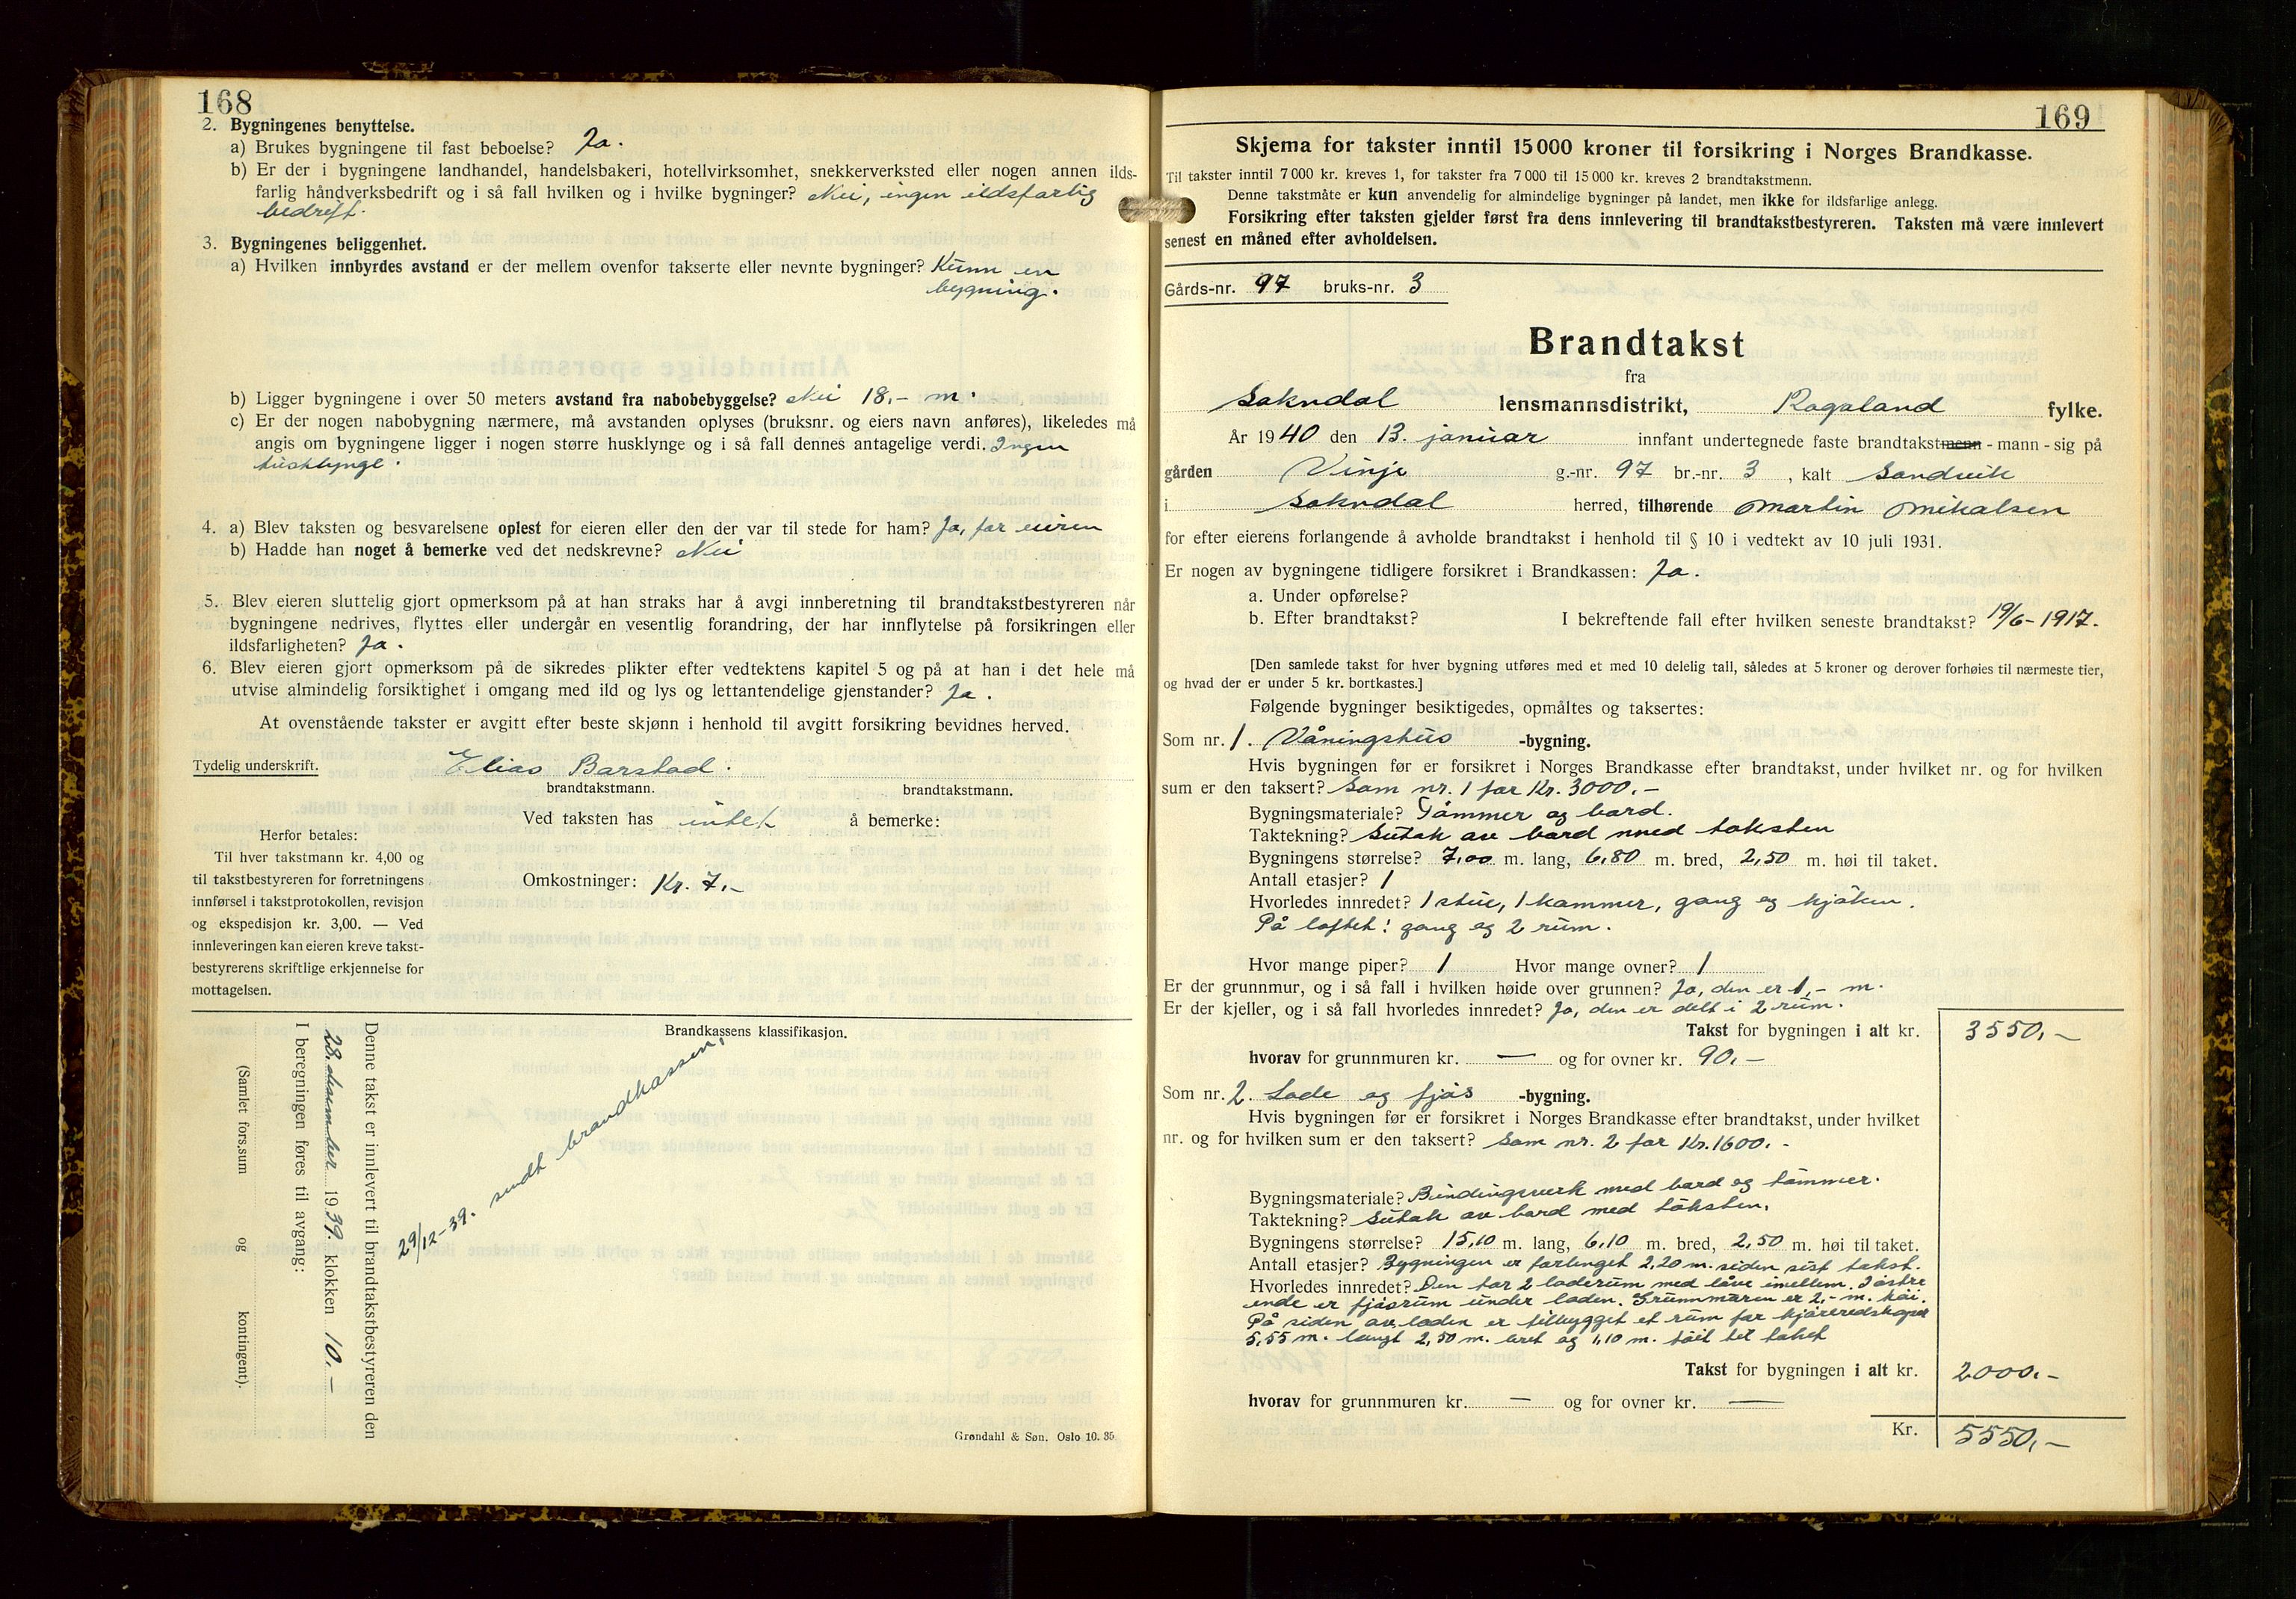 168
2. Bygningenes benyttelse.
a) Brukes bygningene til fast beboelse? Ja.
b) Er der i bygningene landhandel, handelsbakeri, hotellvirksomhet, snekkerverksted eller nogen annen ilds-
farlig håndverksbedrift og i så fall hvilken og i hvilke bygninger? Nei, ingen ildsfarlig
bedrift.
3. Bygningenes beliggenhet.
a) Hvilken innbyrdes avstand er der mellem ovenfor takserte eller nevnte bygninger? Kunn en
bygning.
b) Ligger bygningene i over 50 meters avstand fra nabobebyggelse? Nei 18,- m.
c) Er der nogen nabobygning nærmere, må avstanden oplyses (bruksnr. og eiers navn anføres), likeledes må
angis om bygningene ligger i nogen større husklynge og i så fall dennes antagelige verdi. Ingen
husklynge.
4. a) Blev taksten og besvarelsene oplest for eieren eller den der var til stede for ham? Ja, for eieren
b) Hadde han noget å bemerke ved det nedskrevne? Nei
5. Blev eieren sluttelig gjort opmerksom på at han straks har å avgi innberetning til brandtakstbestyreren når
bygningene nedrives, flyttes eller undergår en vesentlig forandring, der har innflytelse på forsikringen eller
ildsfarligheten? Ja.
6. Blev eieren gjort opmerksom på de sikredes plikter efter vedtektens kapitel 5 og på at han i det hele må
utvise almindelig forsiktighet i omgang med ild og lys og lettantendelige gjenstander? Ja.
At ovenstående takster er avgitt efter beste skjønn i henhold til avgitt forsikring bevidnes herved.
Tydelig underskrift. Elias Barstad.
brandtakstmann. brandtakstmann.
Ved taksten has intet å bemerke:
Herfor betales:
Til hver takstmann kr. 4,00 og
til takstbestyreren for forretningens
innførsel i takstprotokollen, revisjon
og ekspedisjon kr. 3,00. — Ved
innleveringen kan eieren kreve takst-
bestyrerens skriftlige erkjennelse for
mottagelsen.
Omkostninger: Kr. 7,-
Brandkassens klassifikasjon.
Denne takst er innlevert til brandtakstbestyreren den
28. desember 1939. klokken 10.-
I beregningen føres til avgang:
(Samlet fors.sum og kontingent).
29/12-39. sendt brandkassen,
Grøndahl & Søn. Oslo 10. 35
169
Skjema for takster inntil 15000 kroner til forsikring i Norges Brandkasse.
Til takster inntil 7 000 kr. kreves 1, for takster fra 7 000 til 15 000 kr. kreves 2 brandtakstmenn.
Denne takstmåte er kun anvendelig for almindelige bygninger på landet, men ikke for ildsfarlige anlegg.
Forsikring efter taksten gjelder først fra dens innlevering til brandtakstbestyreren. Taksten må være innlevert
senest en måned efter avholdelsen.
Gårds-nr. 97 bruks-nr. 3
Brandtakst
fra
Sokndal lensmannsdistrikt, Rogaland fylke.
År 1940 den 13. januar innfant undertegnede faste brandtakstmenn - mann - sig på
gården Vinje g.-nr. 97 br.-nr. 3, kalt Sandvik
i Sokndal herred, tilhørende Martin Mikalsen
for efter eierens forlangende å avholde brandtakst i henhold til § 10 i vedtekt av 10 juli 1931.
Er nogen av bygningene tidligere forsikret i Brandkassen: Ja.
a. Under opførelse?
b. Efter brandtakst? I bekreftende fall efter hvilken seneste brandtakst? 19/6-1917.
[Den samlede takst for hver bygning utføres med et med 10 delelig tall, således at 5 kroner og derover forhøies til nærmeste tier,
og hvad der er under 5 kr. bortkastes.]
Følgende bygninger besiktigedes, opmåltes og taksertes:
Som nr. 1. Våningshus -bygning.
Hvis bygningen før er forsikret i Norges Brandkasse efter brandtakst, under hvilket nr. og for hvilken
sum er den taksert? Som nr. 1 for Kr. 3000.-
Bygningsmateriale? Tømmer og bord.
Taktekning? Sutak av bord med taksten
Bygningens størrelse? 7,00 m. lang, 6,80 m. bred, 2,50 m. høi til taket.
Antall etasjer? 1
Hvorledes innredet? 1 stue, 1 kammer, gang og kjøken.
På loftet: gang og 2 rum.
Hvor mange piper? 1 Hvor mange ovner? 1
Er der grunnmur, og i så fall i hvilken høide over grunnen? Ja, den er 1,- m.
Er der kjeller, og i så fall hvorledes innredet? Ja, den er delt i 2 rum.
Takst for bygningen i alt kr. 3550,-
hvorav for grunnmuren kr. — og for ovner kr. 90.-
Som nr. 2. Lade og fjøs -bygning.
Hvis bygningen før er forsikret i Norges Brandkasse efter brandtakst, under hvilket
nr. og for hvilken sum er den taksert? Som nr. 2 for Kr. 1600.-
Bygningsmateriale? Bindingsverk med bord og tømmer.
Taktekning? Sutak av bord med taksten.
Bygningens størrelse? 15,10 m. lang, 6,10 m. bred, 2,50 m. høi til taket.
Antall etasjer? Bygningen er forlenget 2,20 m. siden sist takst.
Hvorledes innredet? Den har 2 laderum med låve imellem. I østre
ende er fjøsrum under laden. Grunnmuren er 2,- m. høi.
På siden av laden er tilbygget et rum for kjøreredskaper
5,55 m. langt 2,50 m. bret og 1,10 m. høit til taket
Takst for bygningen i alt kr. 2000.-
hvorav for grunnmuren kr. — og for ovner kr. —
Kr. 5550,-